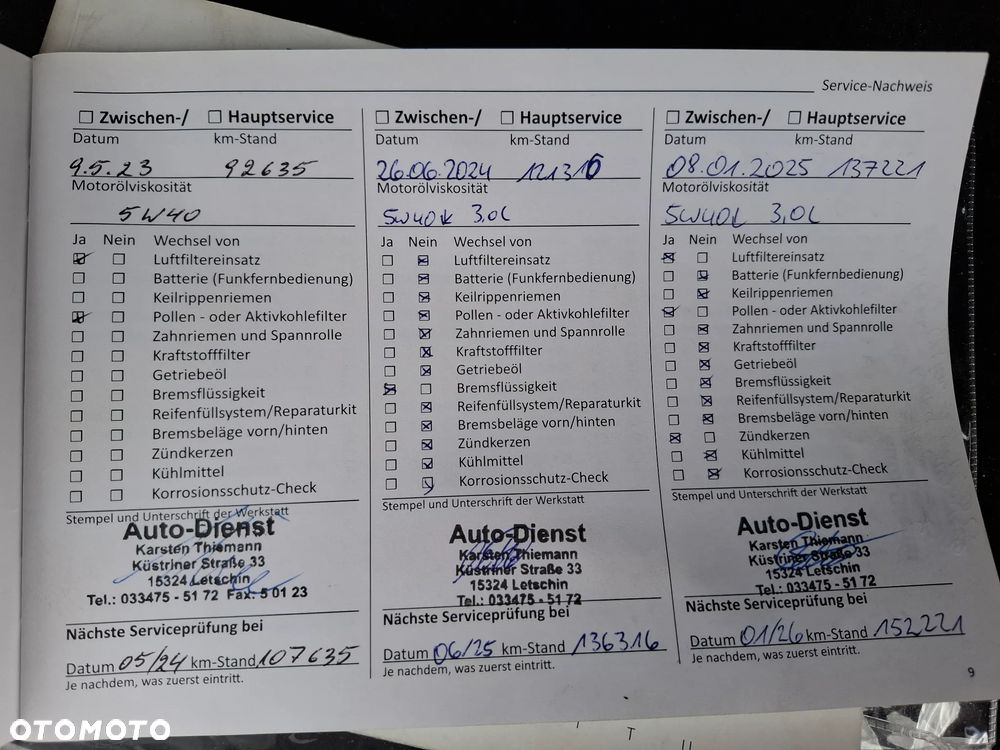 Service-Nachweis
Zwischen-/ Hauptservice
Datum km-Stand
9.5.23 92635
Motorölviskosität
5W40
Ja Nein Wechsel von
Luftfiltereinsatz
Batterie (Funkfernbedienung)
Keilrippenriemen
Pollen - oder Aktivkohlefilter
Zahnriemen und Spannrolle
Kraftstofffilter
Getriebeöl
Bremsflüssigkeit
Reifenfüllsystem/Reparaturkit
Bremsbeläge vorn/hinten
Zündkerzen
Kühlmittel
Korrosionsschutz-Check
Stempel und Unterschrift der Werkstatt
Auto-Dienst
Karsten Thiemann
Küstriner Straße 33
15324 Letschin
Tel.: 033475 - 51 72 Fax: 5 01 23
Nächste Serviceprüfung bei
Datum 05/24 km-Stand 107635
Je nachdem, was zuerst eintritt.
Zwischen-/ Hauptservice
Datum km-Stand
26.06.2024 121316
Motorölviskosität
5W40 3.0L
Ja Nein Wechsel von
Luftfiltereinsatz
Batterie (Funkfernbedienung)
Keilrippenriemen
Pollen - oder Aktivkohlefilter
Zahnriemen und Spannrolle
Kraftstofffilter
Getriebeöl
Bremsflüssigkeit
Reifenfüllsystem/Reparaturkit
Bremsbeläge vorn/hinten
Zündkerzen
Kühlmittel
Korrosionsschutz-Check
Stempel und Unterschrift der Werkstatt
Auto-Dienst
Karsten Thiemann
Küstriner Straße 33
15324 Letschin
Tel.: 033475 - 51 72
Nächste Serviceprüfung bei
Datum 06/25 km-Stand 136316
Je nachdem, was zuerst eintritt.
Zwischen-/ Hauptservice
Datum km-Stand
08.01.2025 137221
Motorölviskosität
5W40 3.0L
Ja Nein Wechsel von
Luftfiltereinsatz
Batterie (Funkfernbedienung)
Keilrippenriemen
Pollen - oder Aktivkohlefilter
Zahnriemen und Spannrolle
Kraftstofffilter
Getriebeöl
Bremsflüssigkeit
Reifenfüllsystem/Reparaturkit
Bremsbeläge vorn/hinten
Zündkerzen
Kühlmittel
Korrosionsschutz-Check
Stempel und Unterschrift der Werkstatt
Auto-Dienst
Karsten Thiemann
Küstriner Straße 33
15324 Letschin
Tel.: 033475 - 51 72
Nächste Serviceprüfung bei
Datum 01/26 km-Stand 152221
Je nachdem, was zuerst eintritt.
9
OTOMOTO